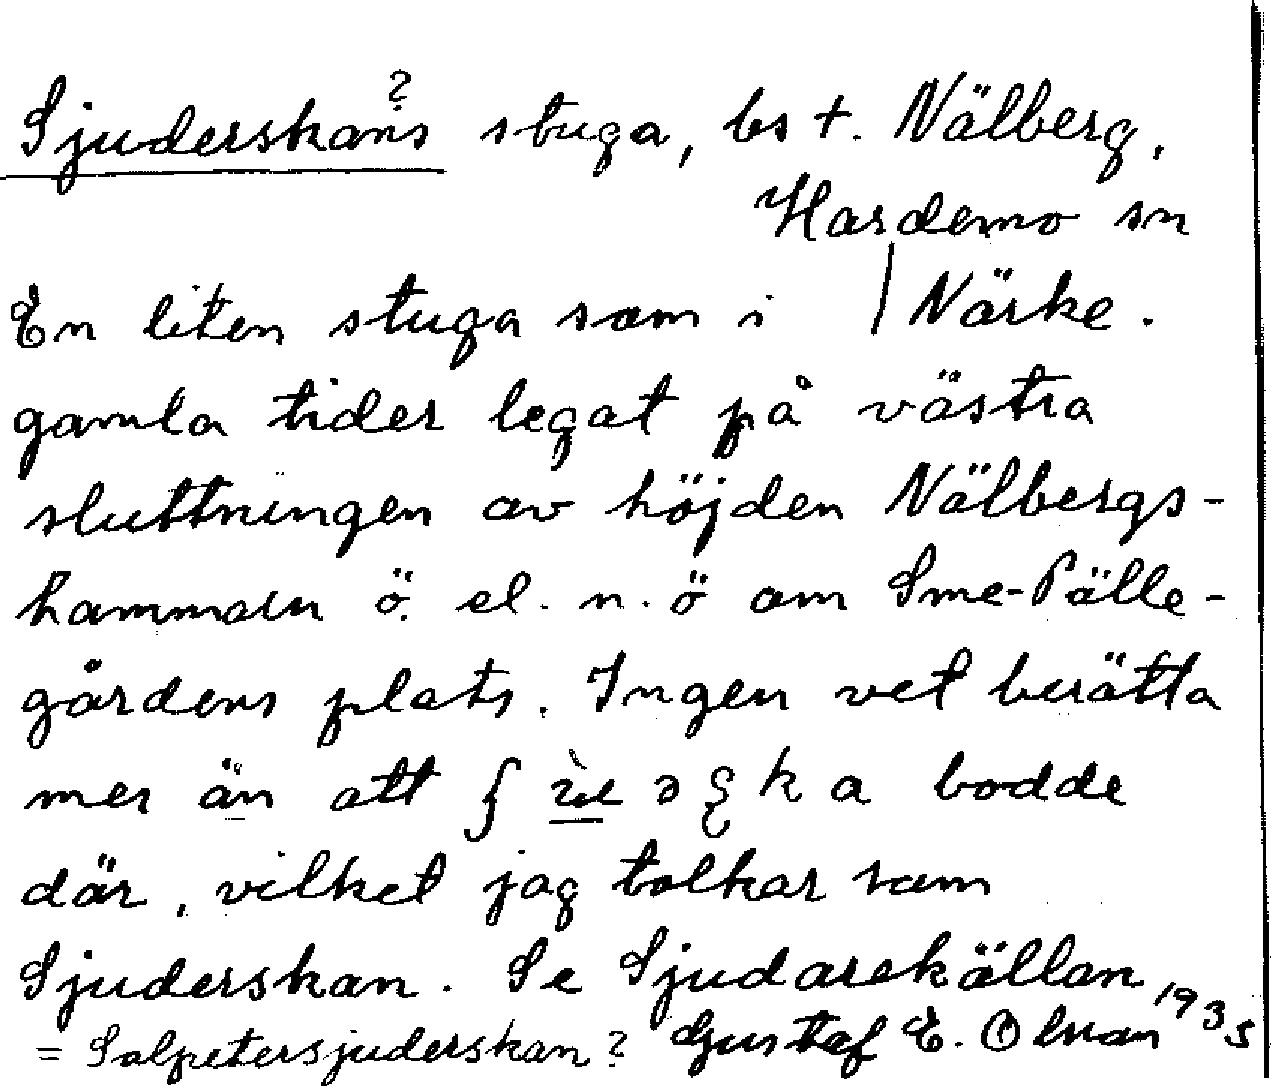 ?
Sjuderskans stuga, bs t. Nälberg,
Hardemo sn
En liten stuga som i | Närke.
gamla tider legat på västra
sluttningen av höjden Nälbergs-
hammarn ö. el. n. ö om Sme-Pälle-
gårdens plats. Ingen vet berätta
mer än att bodde
där, vilket jag tolkar som
Sjuderskan. Se Sjudarekällan
= Salpetersjuderskan? Gustaf E. Olsson 1935